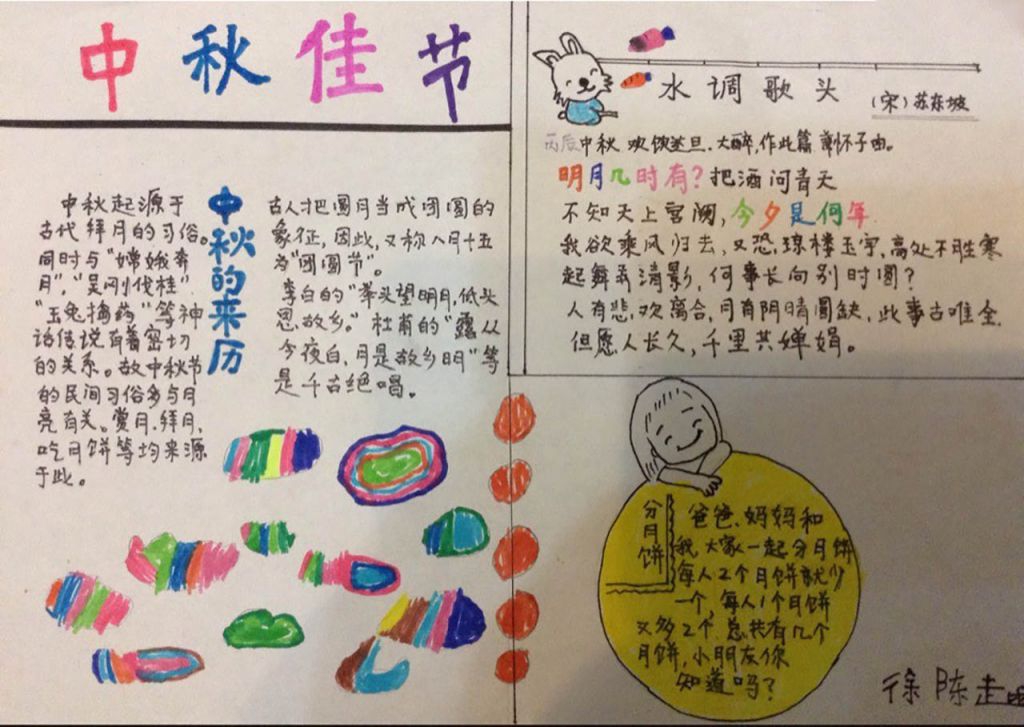 中秋佳节
中秋的来历
中秋起源于
古代拜月的习俗。
同时与“嫦娥奔
月”，“吴刚伐桂”
“玉兔捣药”等神
话传说有着密切
的关系。故中秋节
的民间习俗多与月
亮有关。赏月，拜月，
吃月饼等均来源
于此。
古人把圆月当成团圆的
象征，因此，又称八月十五
为“团圆节”。
李白的“举头望明月，低头
思故乡。”杜甫的“露从
今夜白，月是故乡明”等
是千古绝唱。
水调歌头
（宋）苏东坡
丙辰中秋，欢饮达旦，大醉，作此篇，兼怀子由。
明月几时有？把酒问青天
不知天上宫阙，今夕是何年
我欲乘风归去，又恐琼楼玉宇，高处不胜寒
起舞弄清影，何事长向别时圆？
人有悲，欢离合，月有阴晴圆缺，此事古唯全
但愿人长久，千里共婵娟。
分月饼
爸爸、妈妈和
我，大家一起分月饼
每人2个月饼就少
一个，每人1个月饼
又多2个，总共有几个
月饼，小朋友你
知道吗？
徐陈走